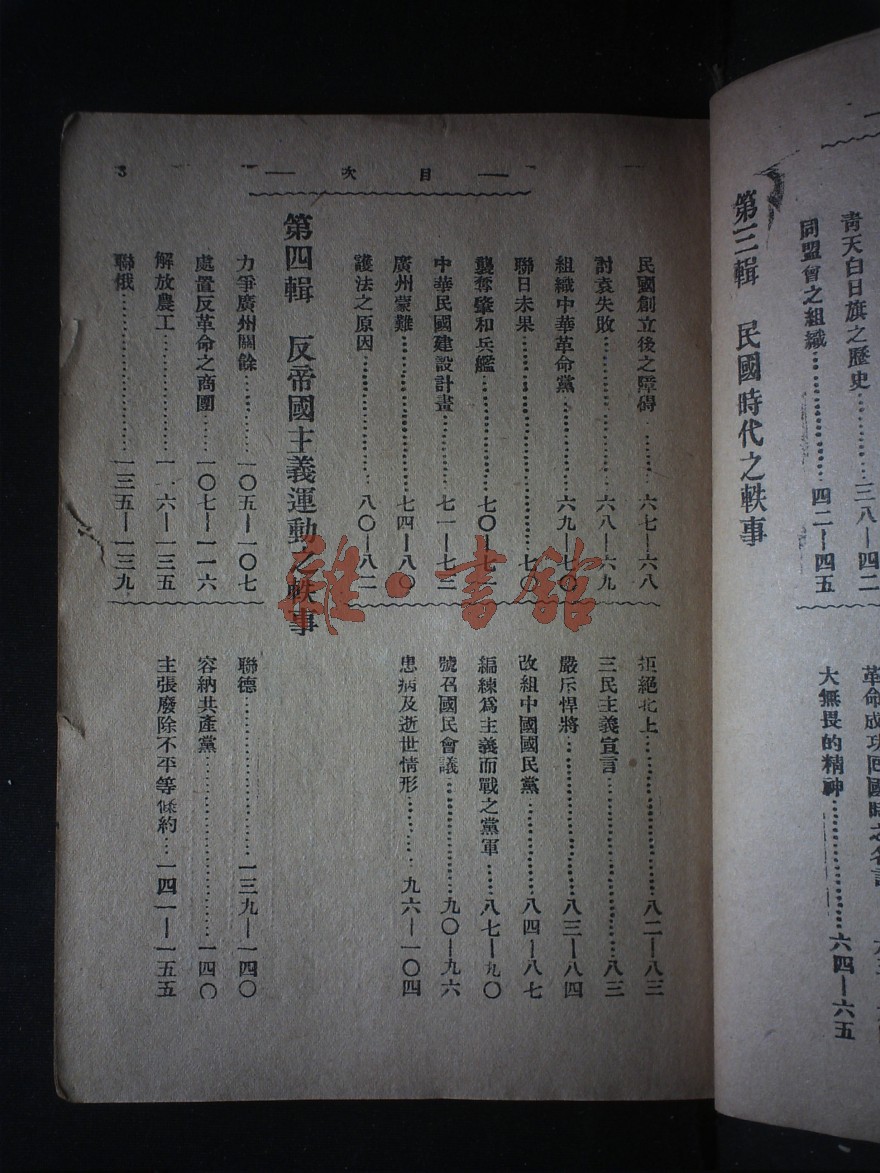 青天白日旗之歷史…………三八—四二
同盟會之組織…………四二—四五
大無畏的精神…………六四—六五
第三輯　民國時代之軼事
目次
3
民國創立後之障碍…………六七—六八
討袁失敗…………六八—六九
組織中華革命黨…………六九—七〇
聯日未果…………七〇
襲奪肇和兵艦…………七〇—七一
中華民國建設計畫…………七一—七二
廣州蒙難…………七四—八〇
護法之原因…………八〇—八二
拒絕北上…………八二—八三
三民主義宣言…………八三
嚴斥悍將…………八三—八四
改組中國國民黨…………八四—八七
編練爲主義而戰之黨軍……八七—九〇
號召國民會議…………九〇—九六
患病及逝世情形…………九六—一〇四
第四輯　反帝國主義運動之軼事
力爭廣州關餘…………一〇五—一〇七
處置反革命之商團……一〇七—一一六
解放農工…………一 六—一三五
聯俄…………一三五—一三九
聯德…………一三九—一四〇
容納共產黨…………一四〇
主張廢除不平等條約…一四一—一五五
雜·書館